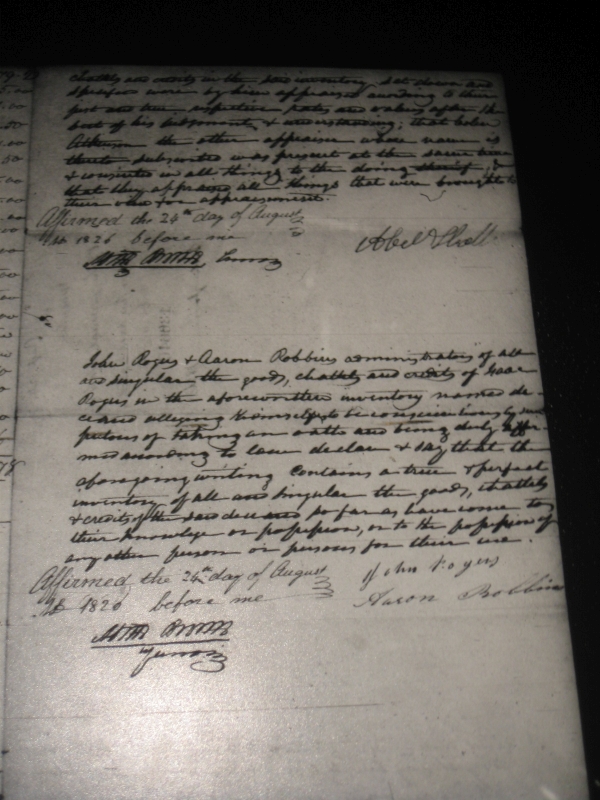 chattels and credits in the said inventory set down and
specified were by him appraised according to their
just and true respective rates and values after the
best of his judgment & understanding; that
the other appraiser whose name is
thereto subscribed was present at the same time
& consented in all things to the doing thereof, &
that they appraised all things that were brought to
their view for appraisement.
Affirmed the 24th day of August
1826 before me
Abel
John Rogers & Aaron Robbins administrators of all
and singular the goods, chattels and credits of Isaac
Rogers in the aforewritten inventory named de-
ceased alledging themselves to be conscientiously scru
pulous of taking an oath and being duly affir
med according to law declare & say that the
aforegoing writing contains a true & perfect
inventory of all and singular the goods, chattels
& credits of the said deceased so far as have come to
their knowledge or possession, or to the possession of
any other person or persons for their use.
Affirmed the 24th day of August
1826 before me
John Rogers
Aaron Robbins